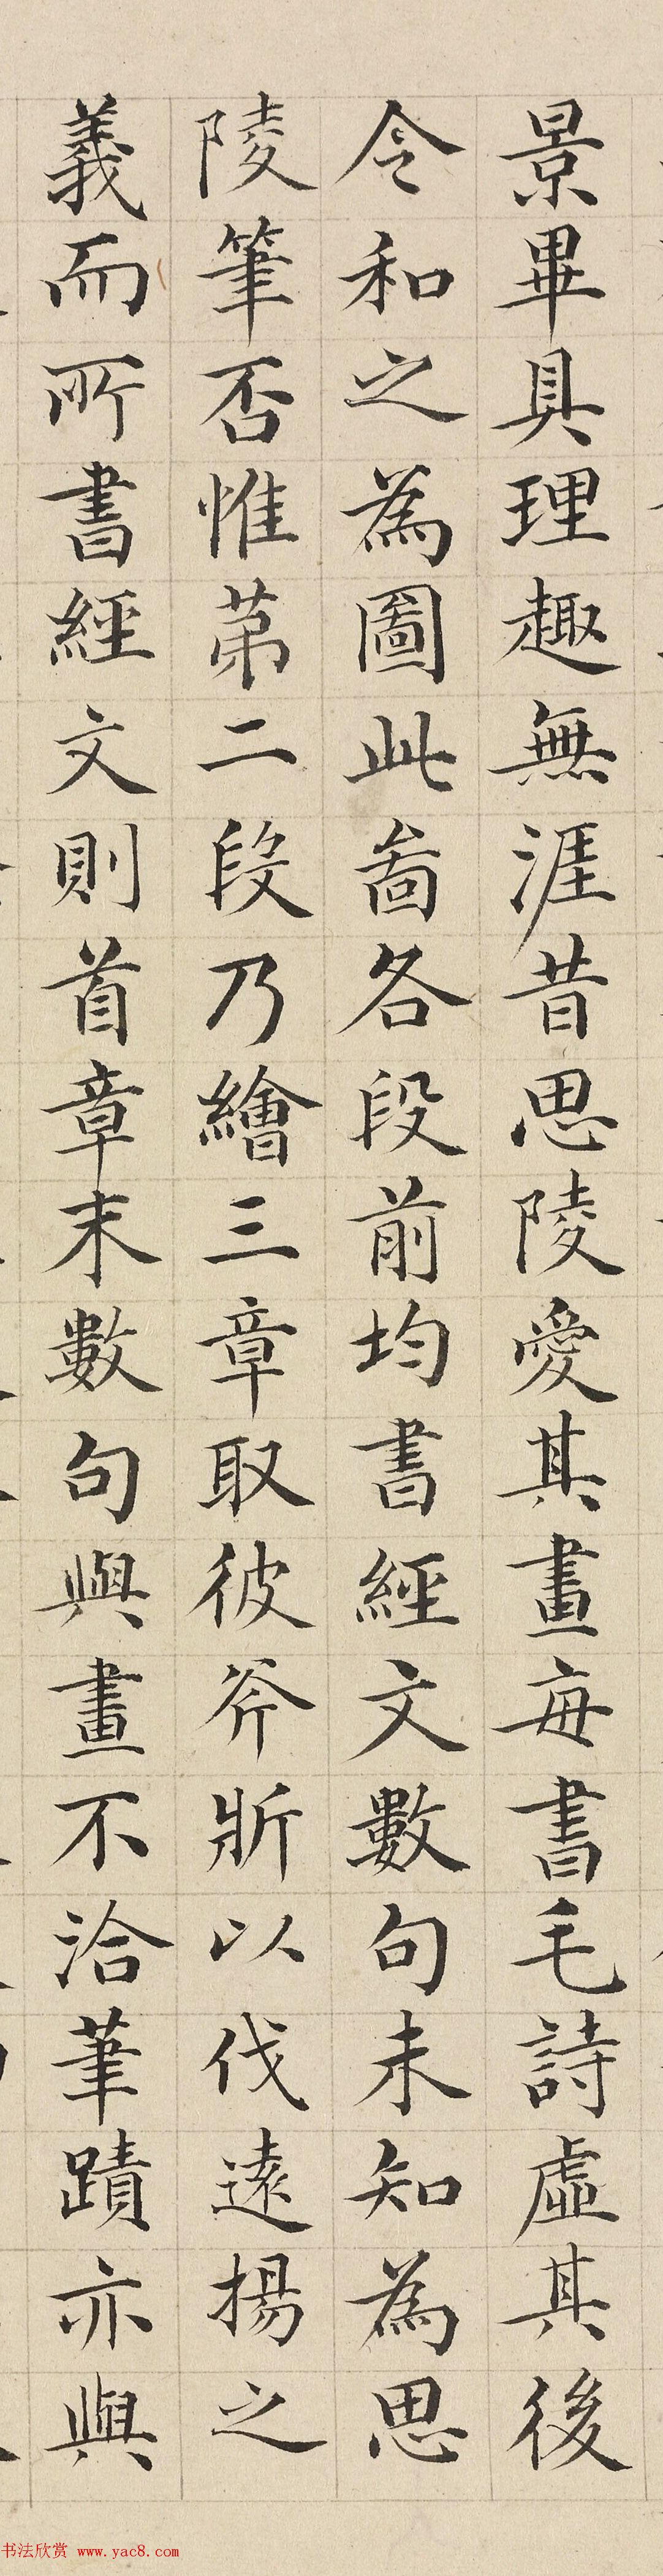 景畢具理趣無涯昔思陵愛其畫每書毛詩虛其後
令和之為圖此啚各段前均書經文數句未知為思
陵筆否惟苐二段乃繪三章取彼斧斨以伐遠揚之
義而所書經文則首章末數句與畫不洽筆蹟亦與
书法欣赏 www.yac8.com